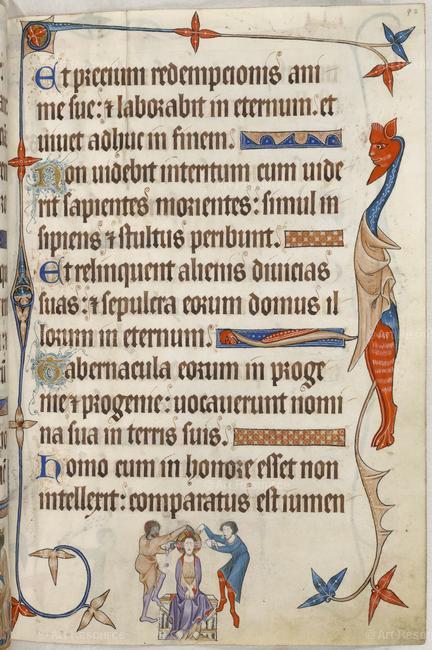 92
Et precium redempcionis ani
me sue: ⁊ laborabit in eternum. et
uiuet adhuc in finem.
Non uidebit interitum cum uide
rit sapientes morientes: simul in
sipiens ⁊ stultus peribunt.
Et relinquent alienis diuicias
suas: ⁊ sepulcra eorum domus il
lorum in eternum.
Tabernacula eorum in proge
nie ⁊ progenie: uocauerunt nomi
na sua in terris suis.
Homo cum in honore esset non
intellexit: comparatus est iumen
© Art Resource
© Art Resource